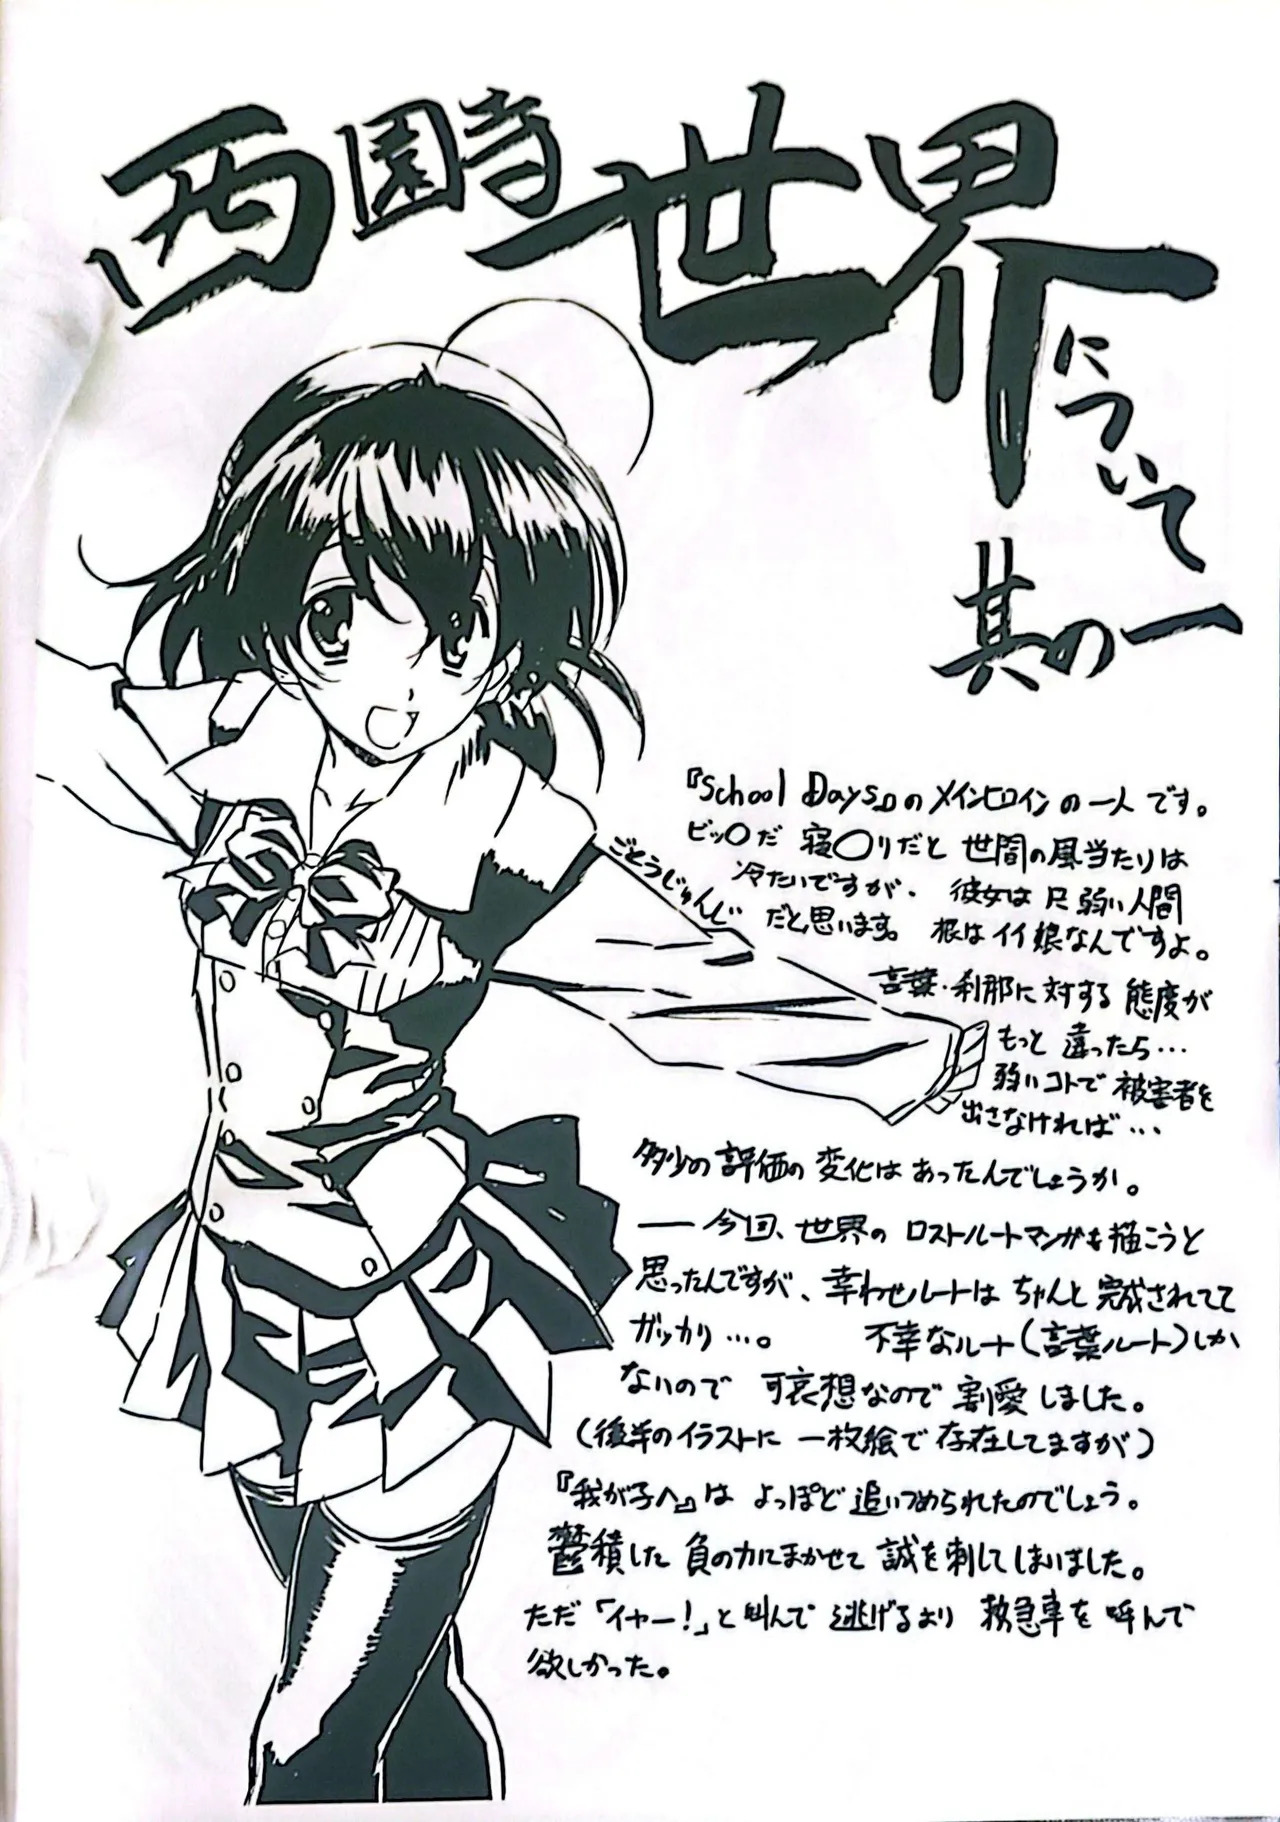 西園寺世界について
其の一
『School Days』のメインヒロインの一人です。
ビッ〇だ 寝〇りだと 世間の風当たりは
冷たいですが、彼女は 只 弱い人間
だと思います。 根はイイ娘なんですよ。
ごとうじゅんじ
言葉・刹那に対する態度が
もっと 違ったら…
弱いコトで 被害者を
出さなければ…
多少の評価の変化はあったんでしょうか。
── 今回、世界の ロストルートマンガを描こうと
思ったんですが、幸わせルートは ちゃんと完成されてて
ガッカリ…。 不幸なルート(言葉ルート)しか
ないので 可哀想なので 割愛しました。
(後半のイラストに 一枚絵で存在してますが)
『我が子へ』は よっぽど 追いつめられたのでしょう。
鬱積した 負の力にまかせて 誠を刺してしまいました。
ただ「イヤー!」と叫んで 逃げるより 救急車を 呼んで
欲しかった。